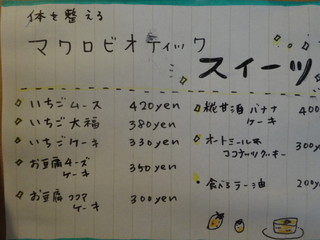 体を整える
マクロビオティック
スイーツ
いちごムース 420yen
いちご大福 380yen
いちごケーキ 330yen
お豆腐チーズ
ケーキ 350yen
お豆腐ココア
ケーキ 300yen
糀甘酒バナナ
ケーキ 400
オートミール
ココナッツクッキー 300y
食べるラー油 200y